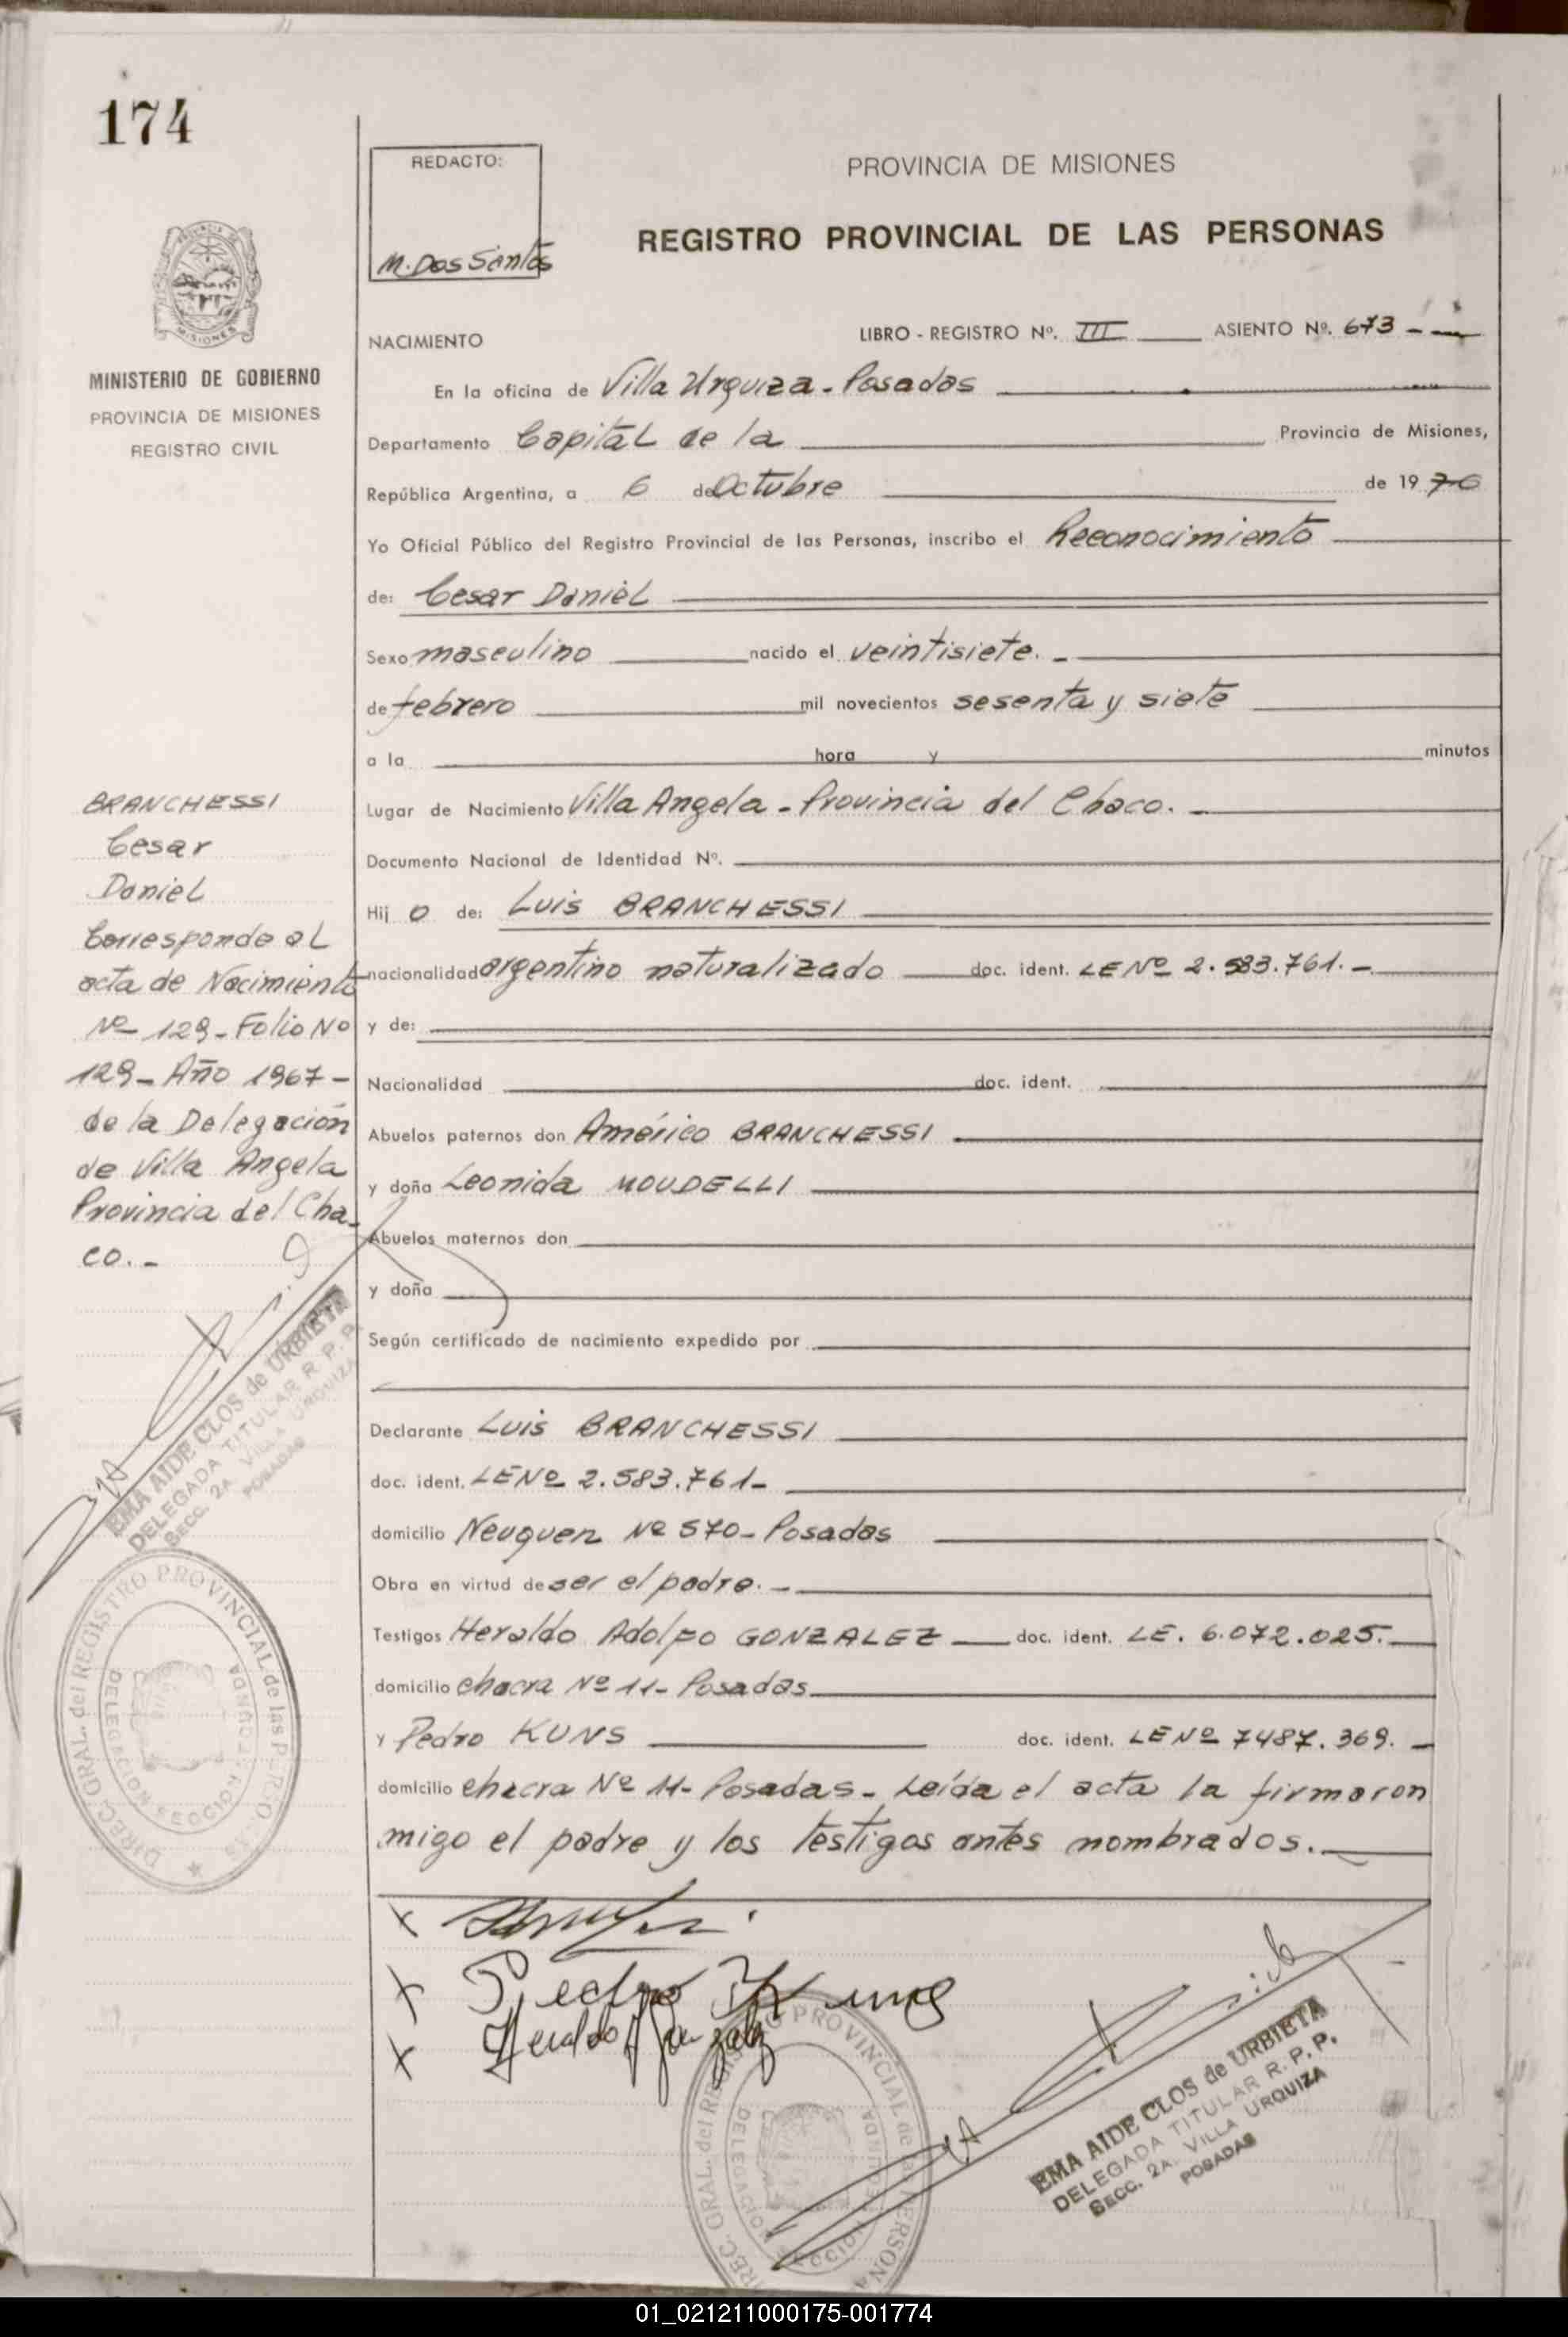 174
REDACTO:
M. Dos Santos
PROVINCIA DE MISIONES
REGISTRO PROVINCIAL DE LAS PERSONAS
MISIONES
MINISTERIO DE GOBIERNO
PROVINCIA DE MISIONES
REGISTRO CIVIL
NACIMIENTO
LIBRO - REGISTRO Nº. III ASIENTO Nº. 673 -
En la oficina de Villa Urquiza - Posadas
Departamento Capital de la Provincia de Misiones,
República Argentina, a 6 de Octubre de 1976
Yo Oficial Público del Registro Provincial de las Personas, inscribo el Reconocimiento
de: Cesar Daniel
Sexo masculino nacido el veintisiete. -
de febrero mil novecientos sesenta y siete
a la hora y minutos
Lugar de Nacimiento Villa Angela - Provincia del Chaco. -
Documento Nacional de Identidad Nº.
Hij o de: Luis BRANCHESSI
nacionalidad argentino naturalizado doc. ident. LE Nº 2.583.761. -
y de:
Nacionalidad doc. ident.
Abuelos paternos don Américo BRANCHESSI
y doña Leonida MOUDELLI
Abuelos maternos don
y doña
Según certificado de nacimiento expedido por
Declarante Luis BRANCHESSI
doc. ident. LE Nº 2.583.761-
domicilio Neuquen Nº 570 - Posadas
Obra en virtud de ser el padre. -
Testigos Heraldo Adolfo GONZALEZ doc. ident. LE. 6.072.025.
domicilio chacra Nº 11- Posadas
y Pedro KUNS doc. ident. LE Nº 7487.369. -
domicilio chacra Nº 11- Posadas - Leída el acta la firmaron
migo el padre y los testigos antes nombrados. -
BRANCHESSI
Cesar
Daniel
Corresponde al
acta de Nacimiento
Nº 129 - Folio Nº
129 - Año 1967 -
de la Delegación
de Villa Angela
Provincia del Cha-
co. -
EMA AIDE CLOS de URBIETA
DELEGADA TITULAR R. P. P.
SECC. 2A. VILLA URQUIZA
POSADAS
DIREC. GRAL. del REGISTRO PROVINCIAL de las
DELEGACION SECCION SEGUNDA
X
X Pedro Kuns
X Heraldo A Gonzalez
DIREC. GRAL. del REGISTRO PROVINCIAL de las PERSONA
DELEGACION SECCION SEGUNDA
EMA AIDE CLOS de URBIETA
DELEGADA TITULAR R. P. P.
SECC. 2A. VILLA URQUIZA
POSADAS
01_021211000175-001774